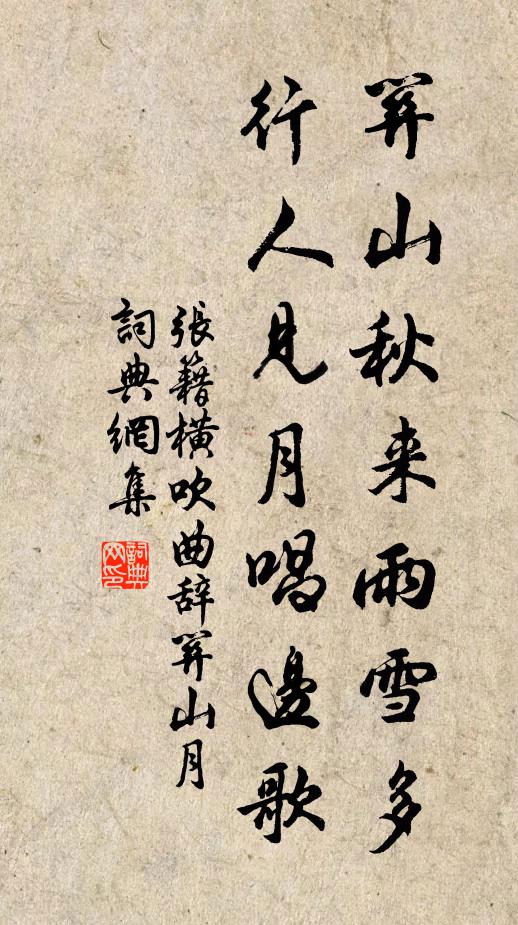 關山秋来雨雪多
行人見月唱邊歌
張籍橫吹曲辞關山月
詞典網集
詞典網印